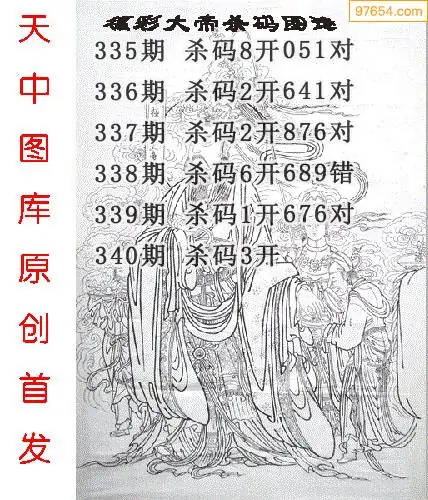 97654.com
福彩大帝杀码图
335期 杀码8开051对
336期 杀码2开641对
337期 杀码2开876对
338期 杀码6开689错
339期 杀码1开676对
340期 杀码3开
天中图库原创首发